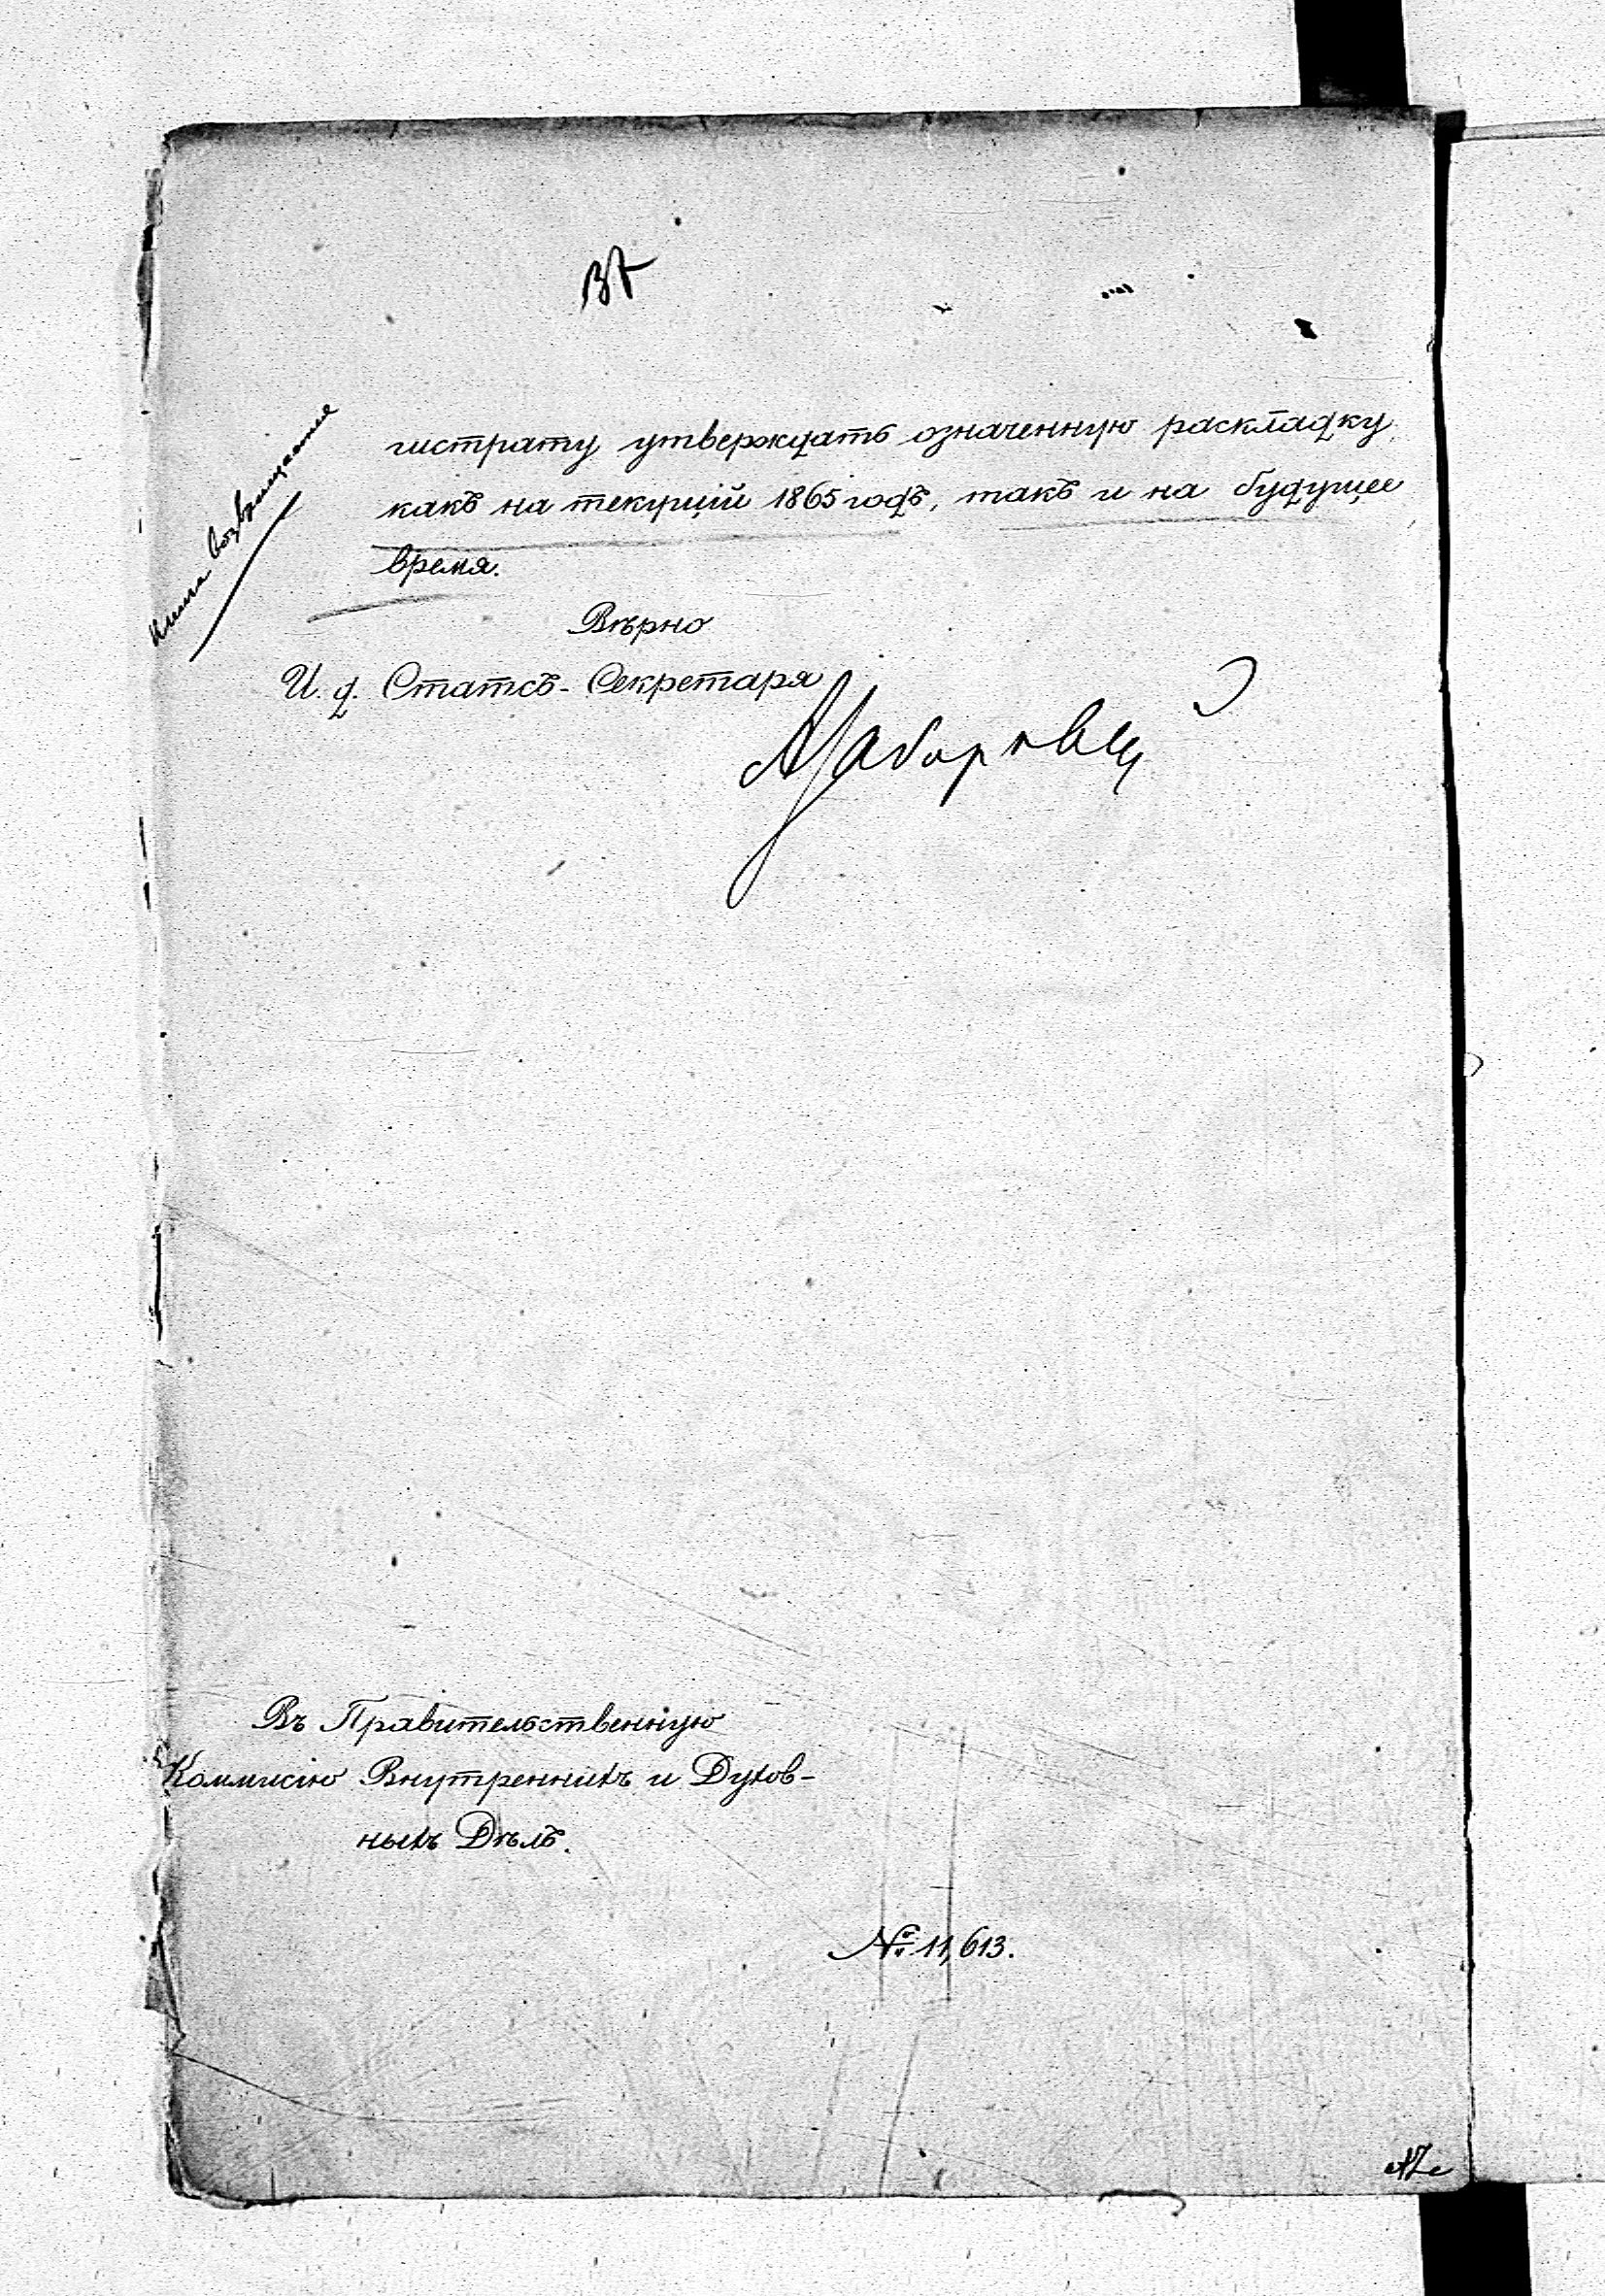 гистрату утверждать означенную раскладку,
какъ на текущій 1865 годъ, такъ и на будущее
время.
Вѣрно
И. д. Статсъ-Секретаря
Въ Правительственную
Коммисію Внутреннихъ и Духов-
ныхъ Дѣлъ.
№ 11,613.